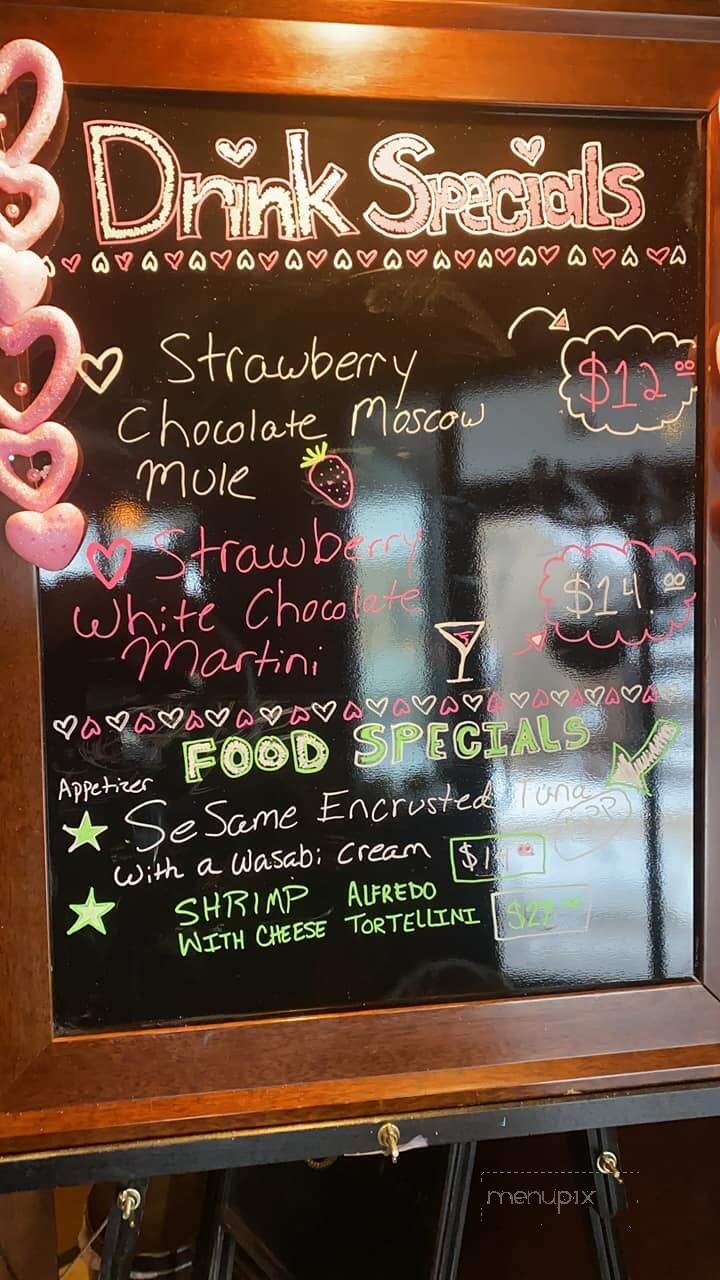 Drink Specials
Strawberry
Chocolate Moscow
Mule
$12.00
Strawberry
White Chocolate
Martini
$14.00
FOOD SPECIALS
Appetizer
SeSame Encrusted Tuna
with a wasabi cream
SHRIMP ALFREDO
WITH CHEESE TORTELLINI
menupix